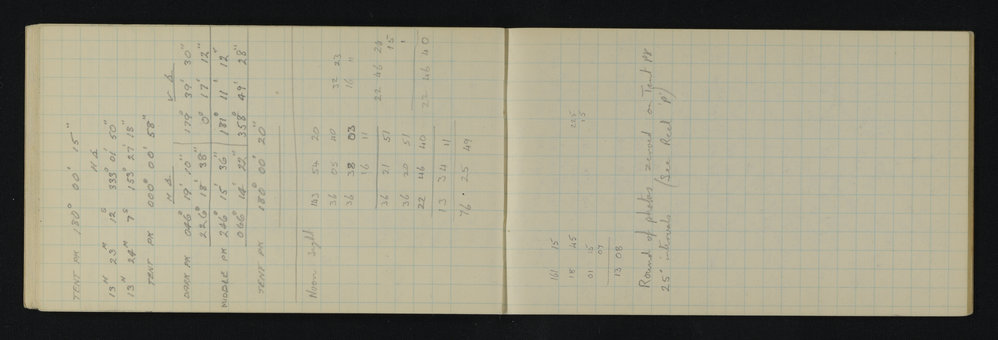 TENT PK 180° 00' 15"
H A
13ᴴ 23ᴹ 12ˢ 333° 01' 50"
13ᴴ 24ᴹ 7ˢ 153° 27' 18"
TENT PK 000° 00' 58"
H A V A
DARK PK 046° 19' 10" 179° 39' 30"
226° 18' 38" 0° 17' 12"
MIDDLE PK 246° 15' 36" 181° 11' 12"
066° 14' 22" 358° 49' 28"
TENT PK 180° 00' 20"
Noon Sight
143 54 20
36 05 40 32 23
36 38 03 16 11
16 11
36 21 51 22 46 26
15
36 20 51
22 46 40 22 46 40
13 34 11
76 . 25 49
161 15
18 45 225
01 15
07
13 08
Round of photos zeroed on Tent PK
25° intervals (See Reel P)